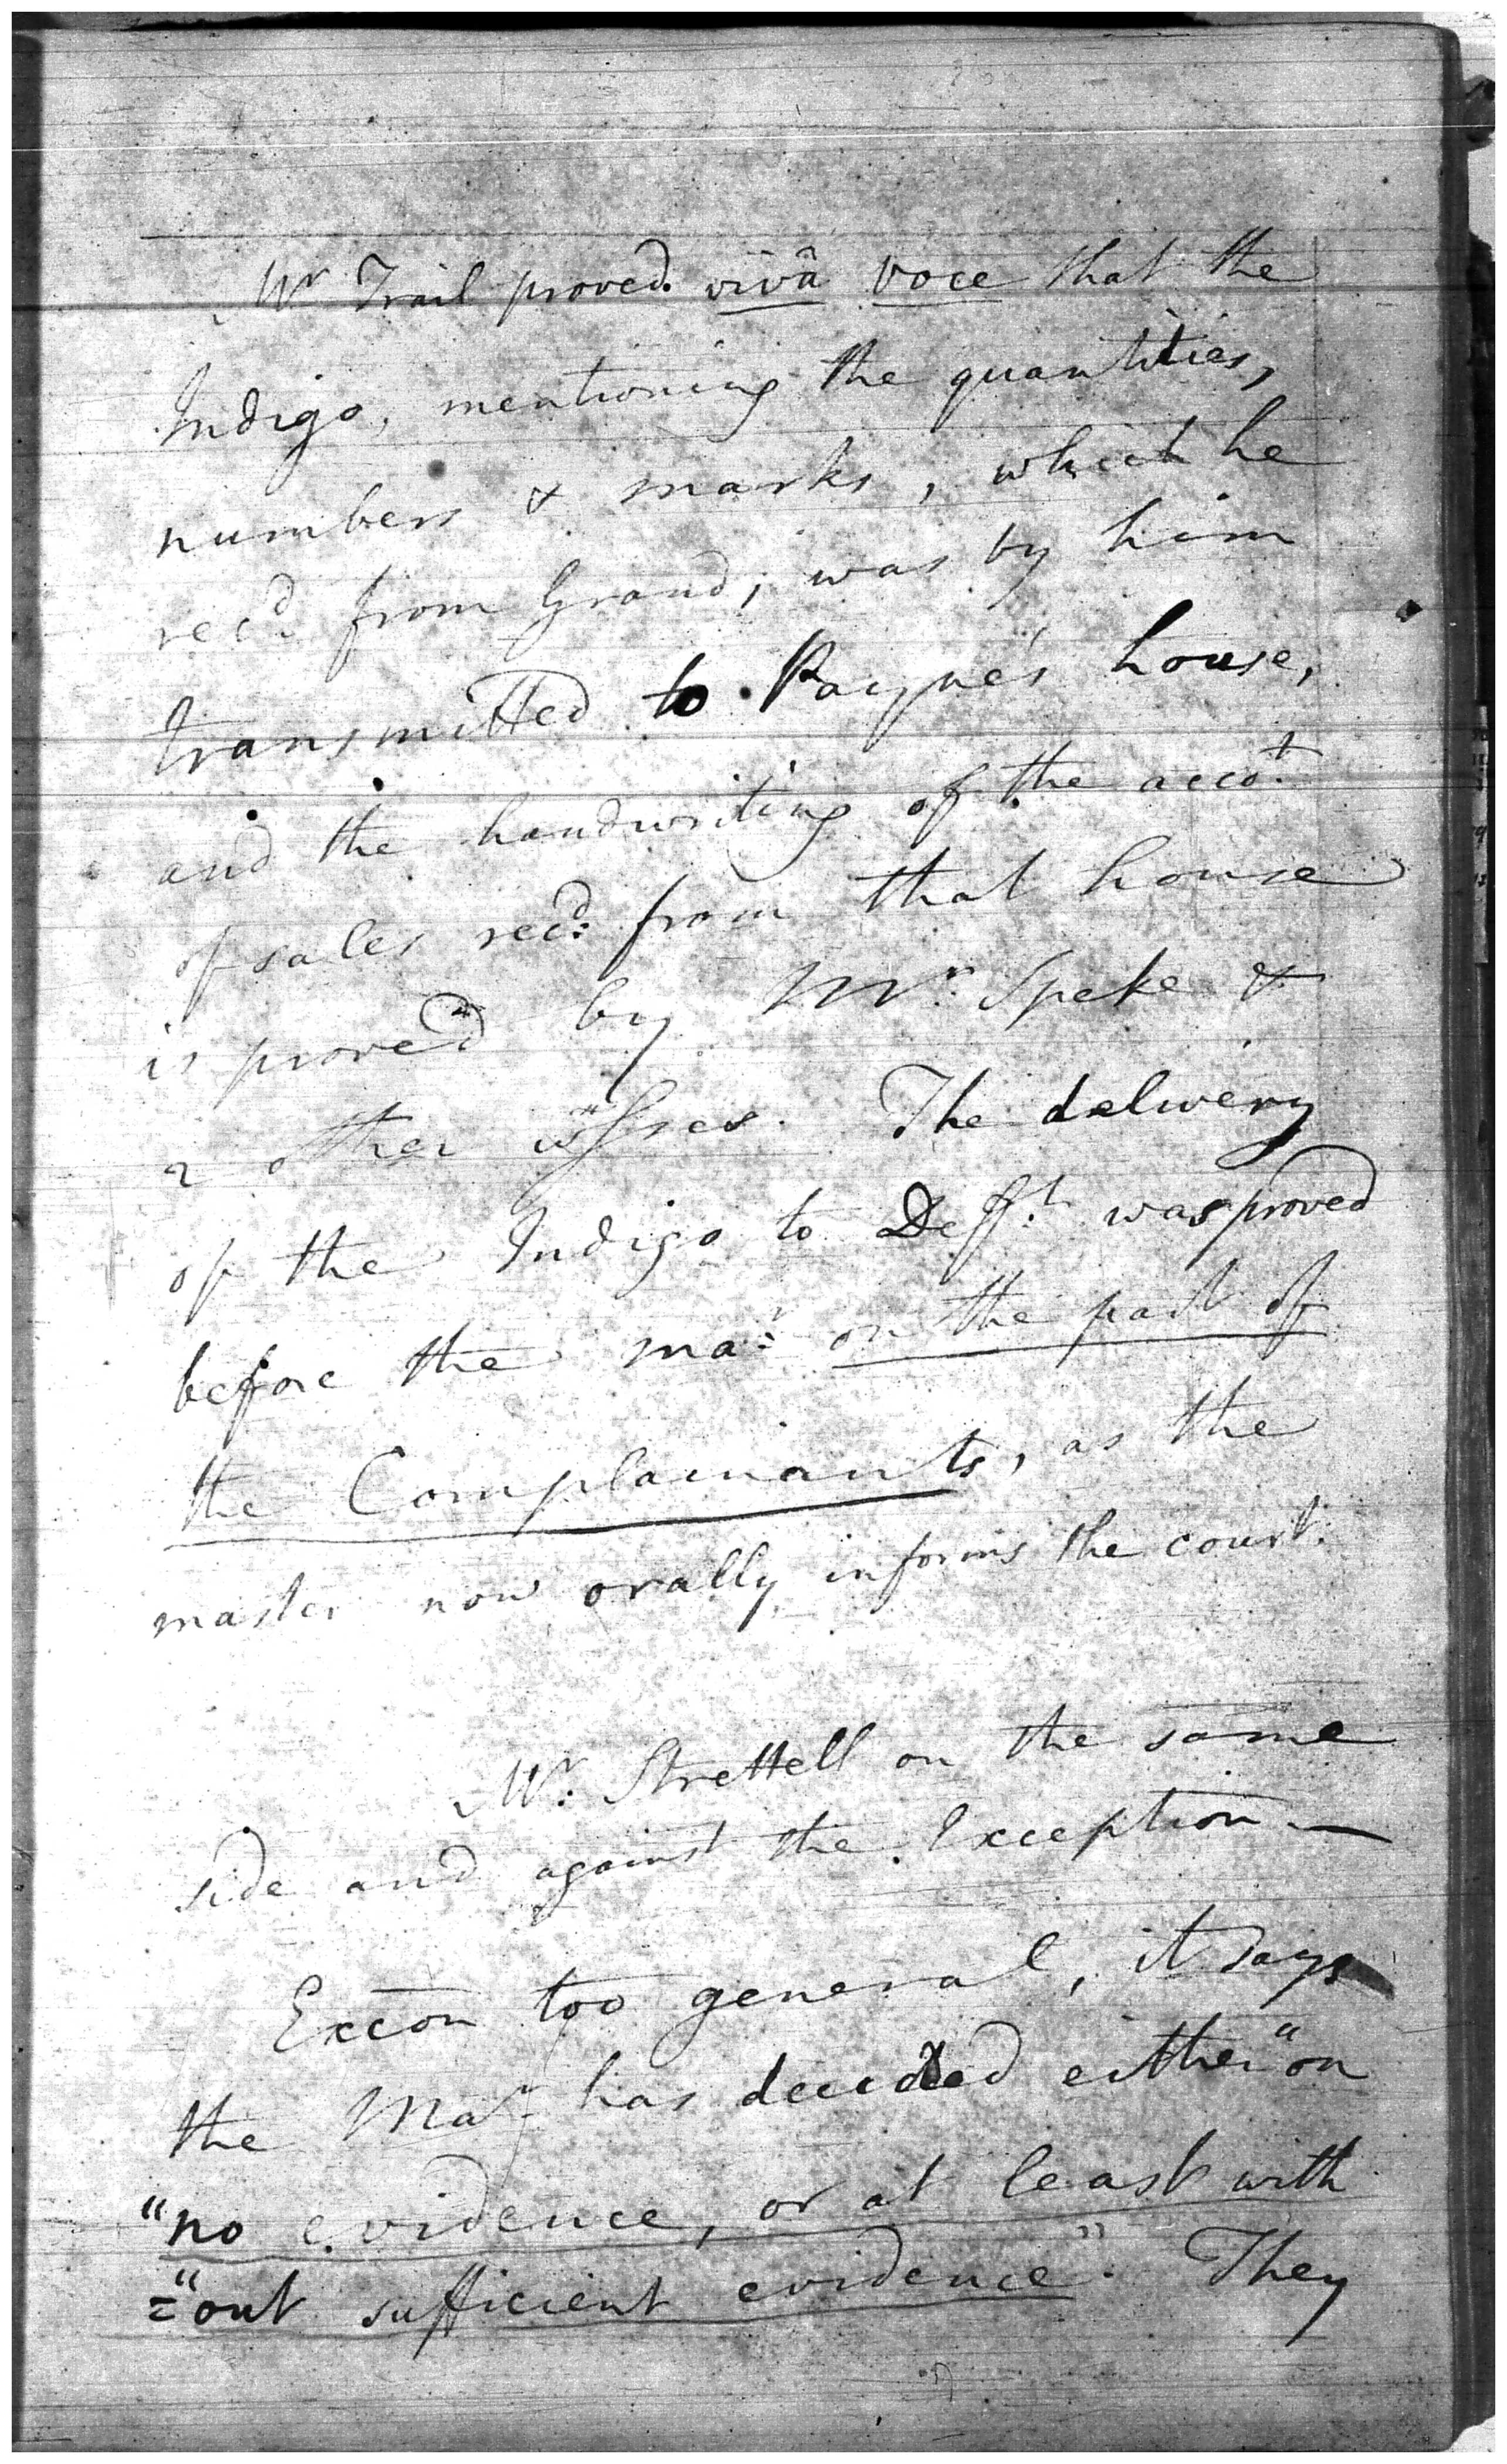 Mr Trail proved vivâ voce that the
Indigo, mentioning the quantities,
numbers & marks, which he
recd from Grand; was by him
transmitted to Payne's house,
and the handwriting of the accot
of sales recd: from that house
is proved by Mr: Speke &
2 other wsses. The delivery
of the Indigo to Defft: was proved
before the mar: on the part of
the Complainants, as the
master now orally informs the court.
Mr: Strettell on the same
side and against the Exception —
Excon too general, it says
the Mar has decided either "on
"no evidence, or at least with
="out sufficient evidence". They